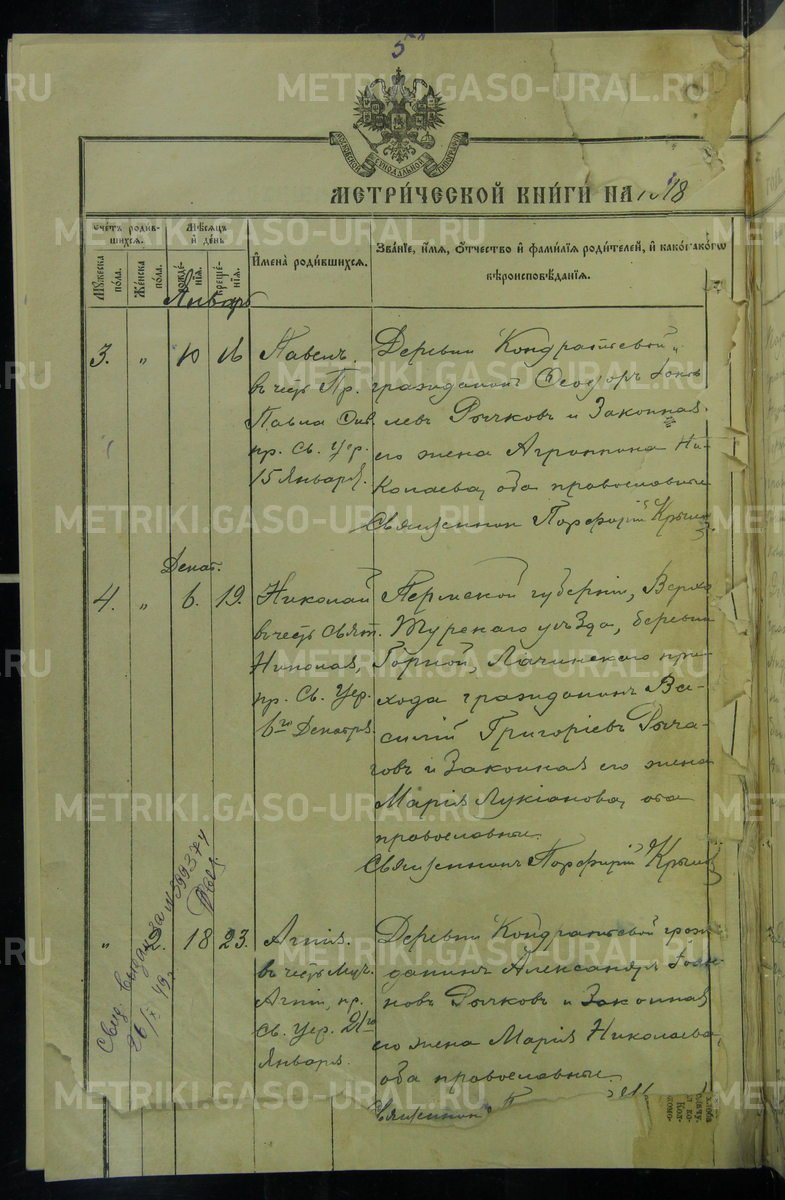 5
МОСКОВСКОЙ СУНОДАЛЬНОЙ ТИПОГРАФIИ
МЕТРИ́ЧЕСКОЙ КНИ́ГИ НА 1918
Сче́тъ роди́в-шихся.
Му́жеска по́ла.
Же́нска по́ла.
Мѣ́сяцъ и де́нь
рожде́нiя.
креще́нiя.
И҆мена̀ роди́вшихся.
Зва́нiе, и҆́мя, ѻ҆́тчество и҆ фами́лiя роди́телей, и҆ како́гѡ вѣроисповѣ́данiя.
Январь
3. " 10 16
Павелъ.
въ честь Пр.
Павла Ѳив.
пр. св. Цер.
15 Января.
Деревни Кондратьевой
гражданинъ Ѳеодоръ
левъ Рычковъ и законная
его жена Агриппина Ни-
колаева, оба православные
Священникъ Порфирiй
Декаб.
4. " 6. 19.
Николай
въ честь свят.
Николая,
пр. св. Цер.
6го Декабря.
Пермской губернiи, Верхо-
Турскаго уѣзда, деревни
Горной, Лачинскаго при-
хода гражданинъ Ва-
силiй Григорiевъ Рыча-
говъ и законная его жена
Марiя Лукiанова, оба
православные.
Священникъ Порфирiй
" 2. 18 23.
Агнiя.
въ честь муч.
Агнiи, пр.
св. Цер. 21го
Января.
Деревни Кондратьевой граж-
данинъ Александръ
новъ Рычковъ и законная
его жена Марiя Николаева,
оба православные.
Священникъ П
Свид. выдан за № 399374
26/X 49 г.
METRIKI.GASO-URAL.RU